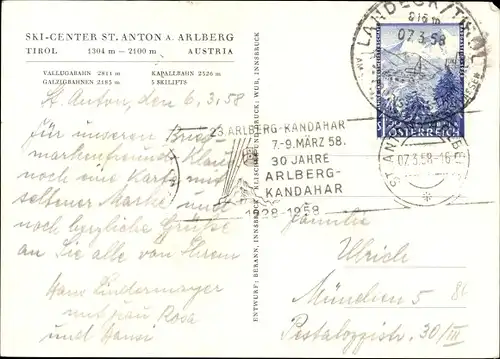 SKI-CENTER ST. ANTON A. ARLBERG
TIROL 1304 m — 2100 m AUSTRIA
VALLUGABAHN 2811 m KAPALLBAHN 2326 m
GALZIGBAHNEN 2185 m 5 SKILIFTS
St. Anton, den 6.3.58
Für unseren Brief-
markenfreund Klaus
noch eine Karte mit
seltener Marke und
noch herzliche Grüße
an Sie alle von Ihrem
Hans Lindermayer
mit Frau Rosa
und Hansi
ENTWURF: BERANN, INNSBRUCK; KLISCHEE UND DRUCK: WUB, INNSBRUCK
LANDECK/TIROL
816 m
07.3.58
AM
ÖSTERREICH
23. ARLBERG-KANDAHAR
7.-9. MÄRZ 58.
30 JAHRE
ARLBERG-
KANDAHAR
1928-1958
ST. ANTON
07.3.58-16
Familie
Ulrich
München 5
Pestalozzistr. 30/III